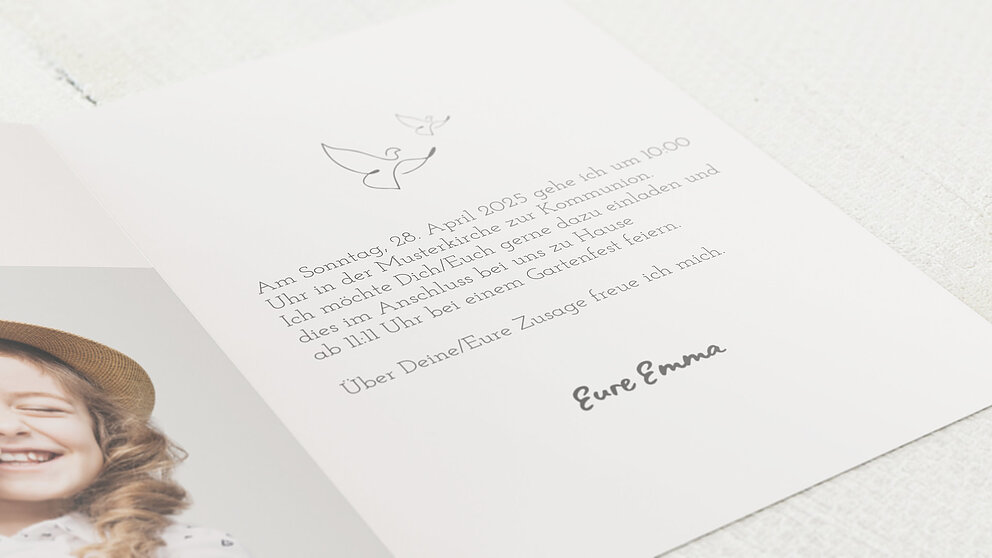 Am Sonntag, 28. April 2025 gehe ich um 10:00
Uhr in der Musterkirche zur Kommunion.
Ich möchte Dich/Euch gerne dazu einladen und
dies im Anschluss bei uns zu Hause
ab 11:11 Uhr bei einem Gartenfest feiern.
Über Deine/Eure Zusage freue ich mich.
Eure Emma